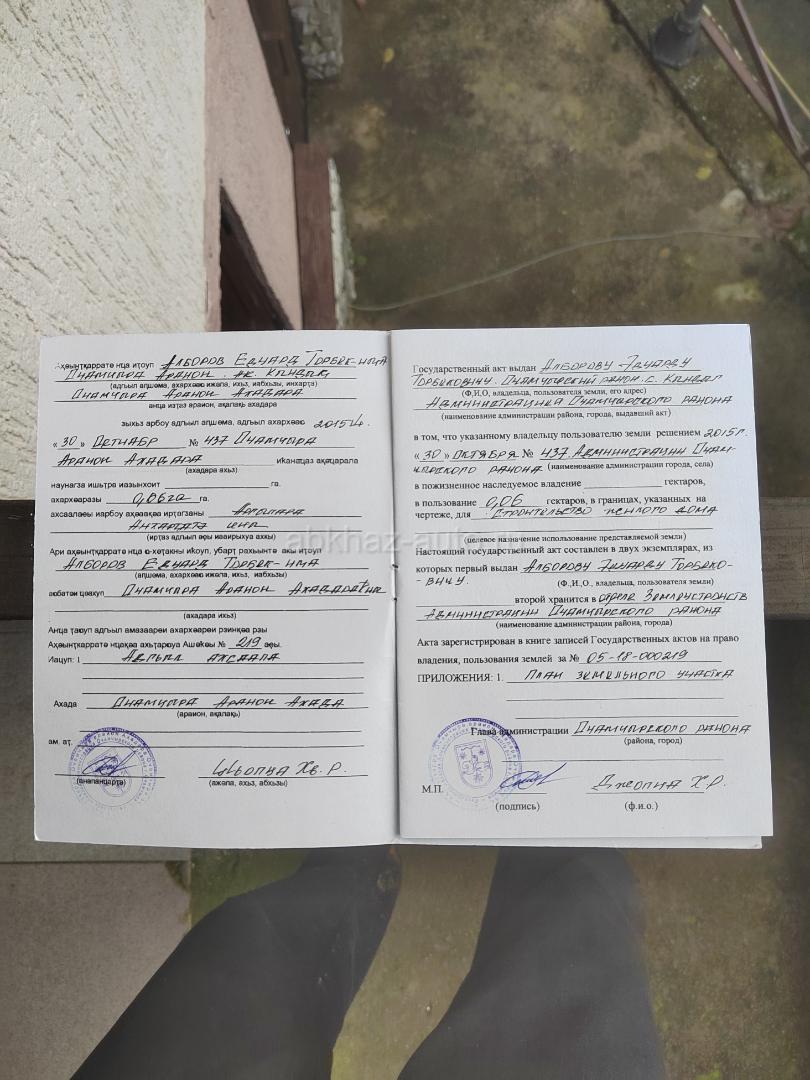 Аҳәынҭқарратә нца иҭоуп Алборов Едуард Торбек-иԥа
Очамчыра Араион. ақ. Кындыӷ
(адгьыл аԥшәма, ахархәаҩ ижәла, ихьӡ, иабхьӡы, инхарҭа)
Очамчыра Араион Ахадара
анца иҭаз араион, ақалақь ахадара
зыхьӡ арбоу адгьыл аԥшәма, адгьыл ахархәаҩ 2015
« 30 » № 437 Очамчыра
Араион Ахадара
(ахадара ахьӡ)
наунагӡа ишьҭра иазынхоит га.
ахархәаразы 0,06 га га.
(иҭаз адгьыл аҿы иаавирыхуа ахкы)
Алборов Едуард Торбек-иԥа
(аԥшәма, ахархәаҩ ижәла, ихьӡ, иабхьӡы)
Очамчыра Араион
(ахадара ихьӡ)
Анца ҭаҩуп адгьыл амазаареи ахархәареи рзинқәа рзы
Аҳәынҭқарратә нцақәа ахьҭарҩуа Ашәҟәы № 219 аҿы.
Иаҵуп: 1
Ахада Очамчыра Араион Ахада
(араион, ақалақь)
ам. аҭ.
Џьопуа Хв. Р.
(анапанҵарҭа) (ажәла, ахьӡ, абхьӡы)
Государственный акт выдан Алборову Эдуарду
Торбековичу. Очамчырский район с. Кындыг
(Ф.И.О, владельца, пользователя земли, его адрес)
Администрацией Очамчырского района
(наименование администрации района, города, выдавший акт)
в том, что указанному владельцу пользователю земли решением 2015 г.
« 30 » октября № 437 Администрации Очам-
чырского района (наименование администрации города, села)
в пожизненное наследуемое владение гектаров,
в пользование 0,06 гектаров, в границах, указанных на
чертеже, для строительство жилого дома
(целевое назначение использование представляемой земли)
Настоящий государственный акт составлен в двух экземплярах, из
которых первый выдан Алборову Эдуарду Торбеко-
-вичу. (Ф.,И.О., владельца, пользователя земли)
второй хранится в отделе Землеустройств
Администрации Очамчырского района
(наименование администрации района, города)
Акта зарегистрирован в книге записей Государственных актов на право
владения, пользования землей за № 05-18-000219
ПРИЛОЖЕНИЯ: 1. План земельного участка
Глава администрации Очамчырского района
(района, город)
М.П. Джопуа Х.Р.
(подпись) (ф.и.о.)
abkhaz-auto